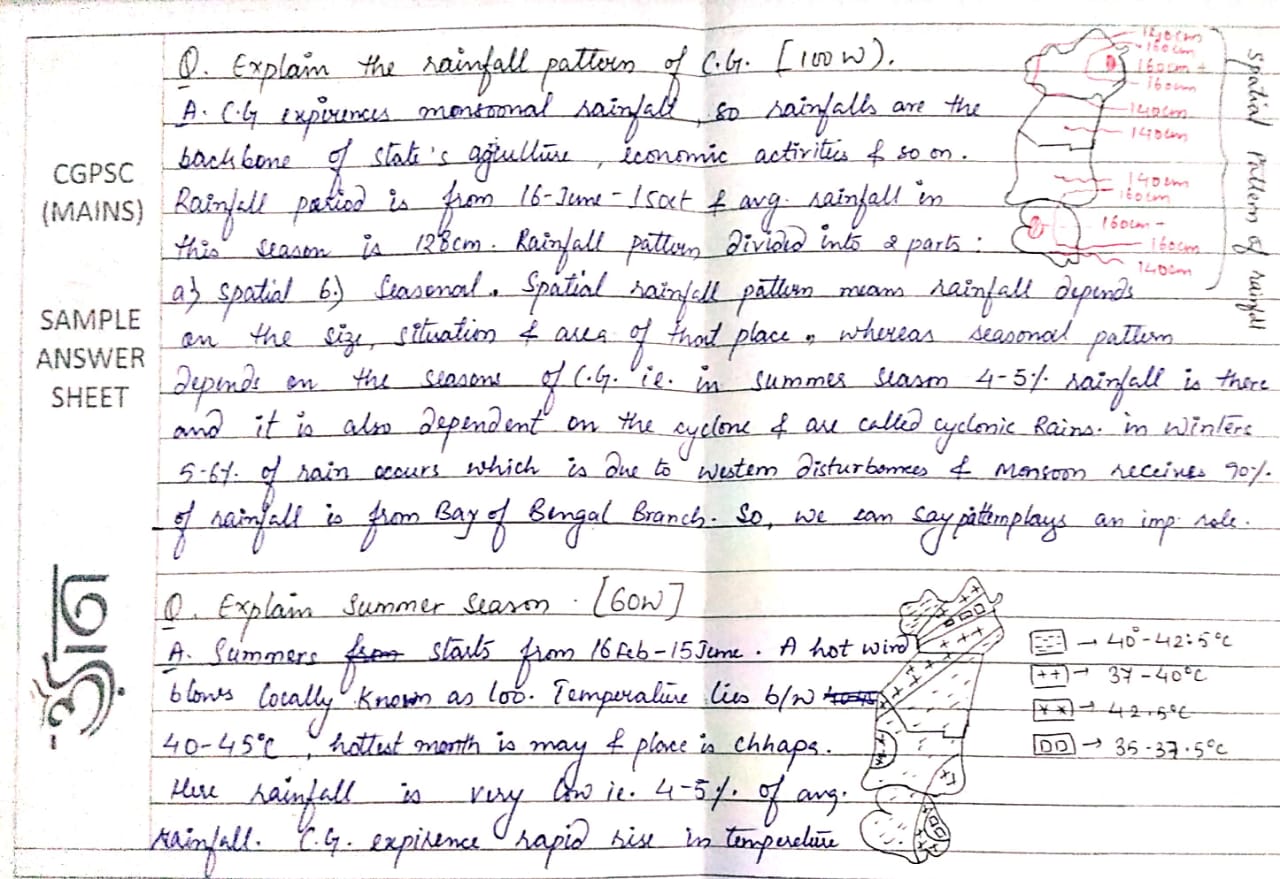 Q. Explain the rainfall pattern of C.G. [100W].
A. C.G expirences monsoonal rainfall, so rainfalls are the
backbone of state's agriculture, economic activities & so on.
Rainfall period is from 16-June-15oct & avg. rainfall in
this season is 128cm. Rainfall pattern divided into 2 parts:
a) spatial b.) Seasonal. Spatial rainfall pattern means rainfall depends
on the size, situation & area of that place, whereas seasonal pattern
depends on the seasons of C.G. ie. in summer season 4-5% rainfall is there
and it is also dependent on the cyclone & are called cyclonic Rains. in winters
5-6% of rain occurs which is due to western disturbances & Monsoon receives 90%.
of rainfall is from Bay of Bengal Branch. So, we can say pattern plays an imp. role.
140cm
160cm
160cm +
160cm
140cm
140cm
140cm
160cm
160cm -
160cm
140cm
Spatial Pattern of rainfall
CGPSC
(MAINS)
SAMPLE
ANSWER
SHEET
Q. Explain Summer Season. [60W]
A. Summers from starts from 16Feb-15June. A hot wind
blows locally known as loo. Temperature lies b/w
40-45°C, hottest month is may & place is chhapa.
Here rainfall is very low ie. 4-5%. of avg.
rainfall. C.G. expirence rapid rise in temperature
→ 40°-42.5°C
++ → 37-40°C
xx → 42.5°C
→ 35-37.5°C